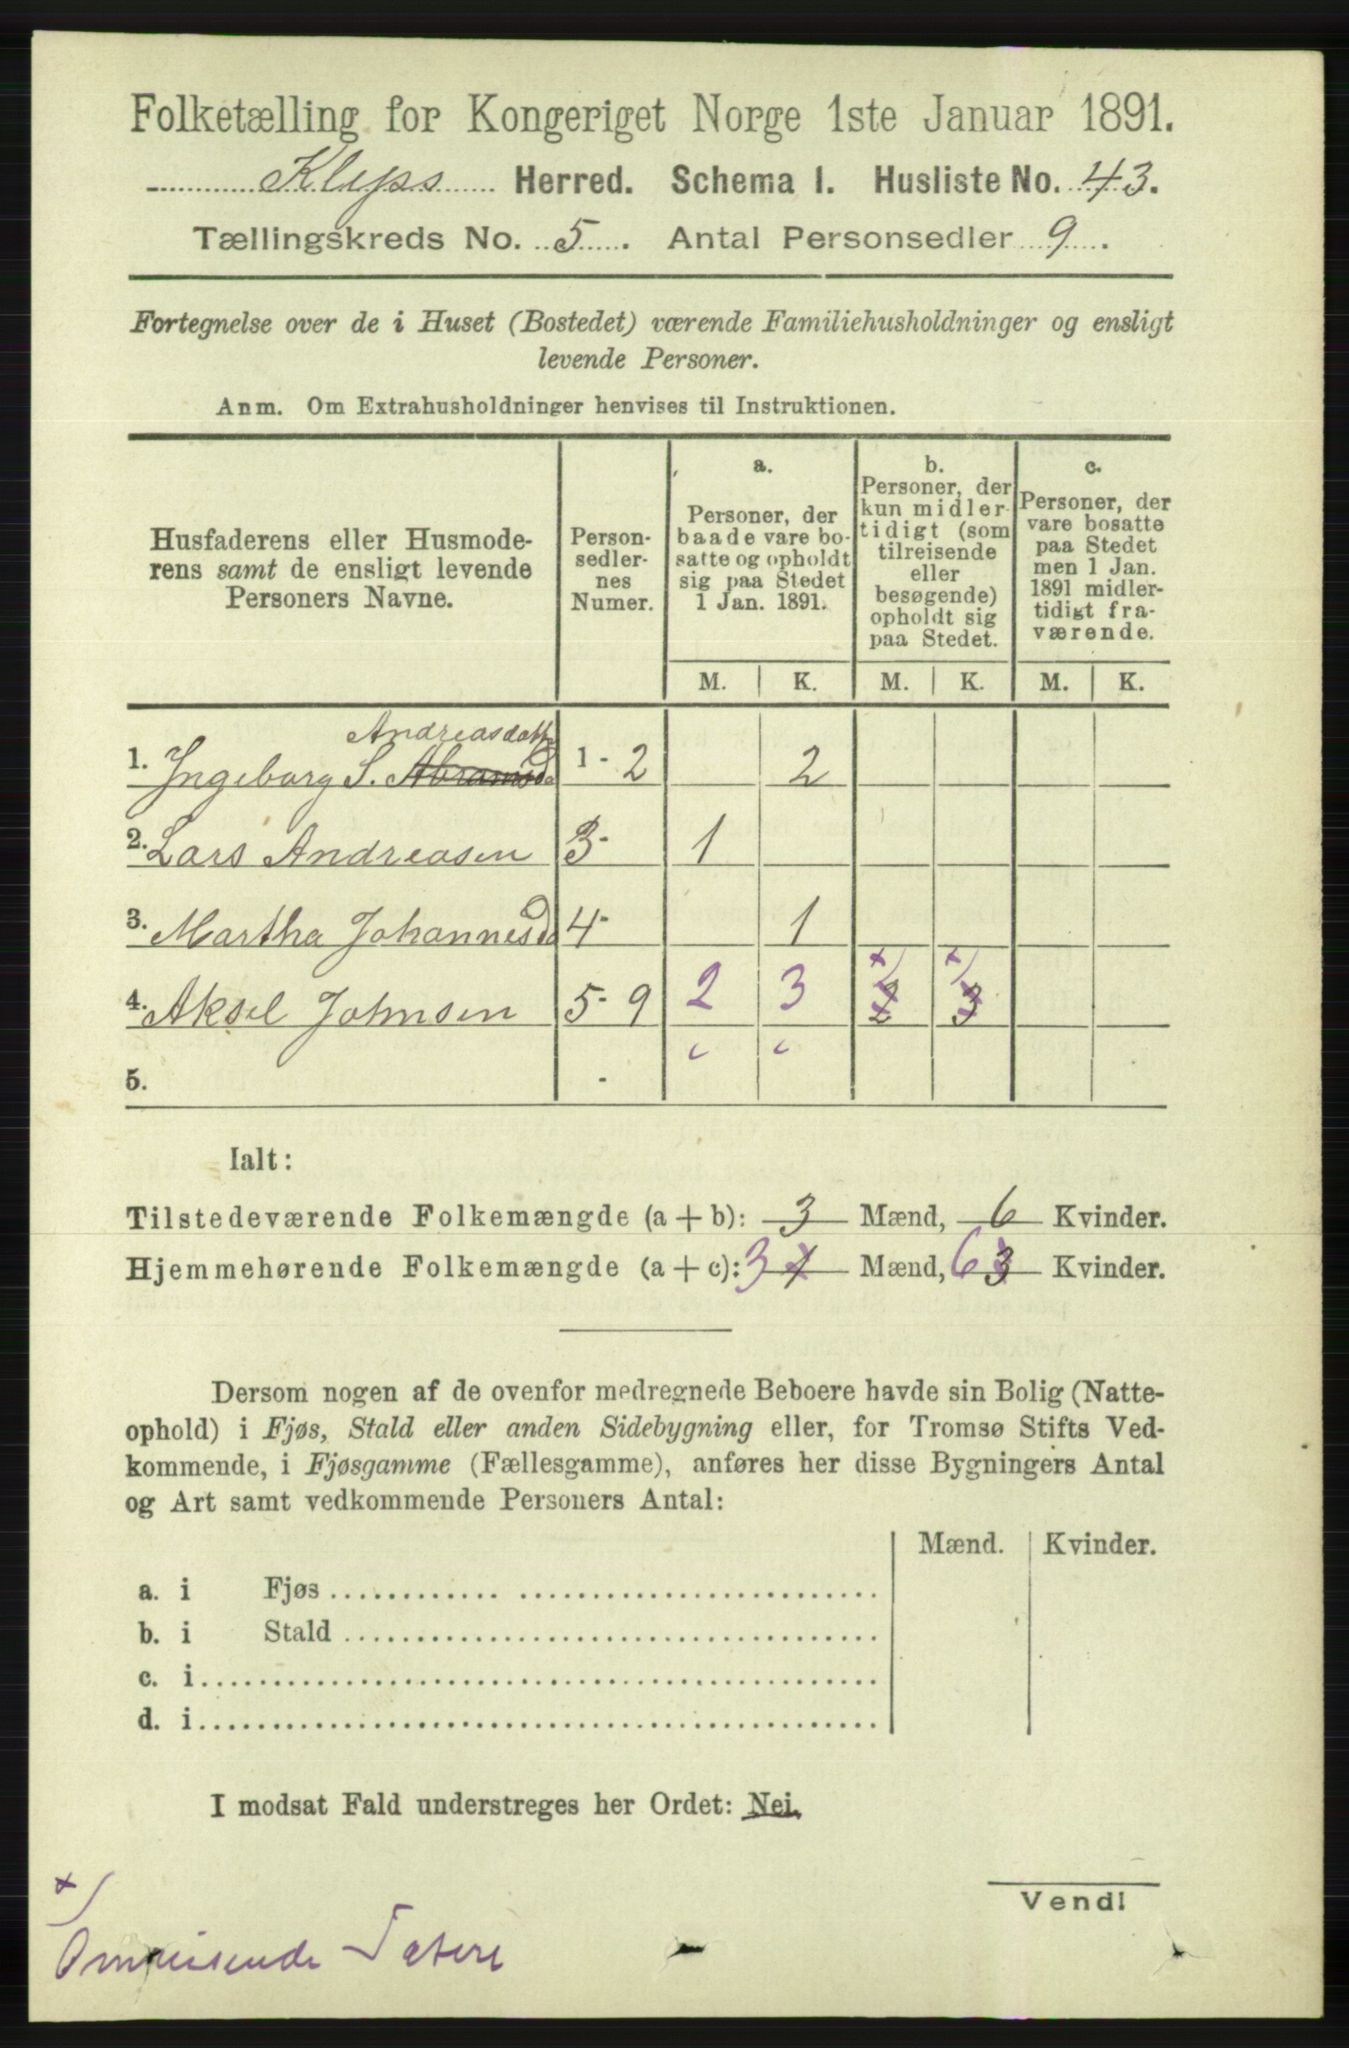 Folketælling for Kongeriget Norge 1ste Januar 1891.
Klepss Herred. Schema I. Husliste No. 43.
Tællingskreds No. 5. Antal Personsedler 9.
Fortegnelse over de i Huset (Bostedet) værende Familiehusholdninger og ensligt
levende Personer.
Anm. Om Extrahusholdninger henvises til Instruktionen.
Husfaderens eller Husmode-
rens samt de ensligt levende
Personers Navne.
Person-
sedler-
nes
Numer.
a.
Personer, der
baade vare bo-
satte og opholdt
sig paa Stedet
1 Jan. 1891.
b.
Personer, der
kun midler-
tidigt (som
tilreisende
eller
besøgende)
opholdt sig
paa Stedet.
c.
Personer, der
vare bosatte
paa Stedet
men 1 Jan.
1891 midler-
tidigt fra-
værende.
M. K. M. K. M. K.
Andreasdatt
1. Ingeborg S. Abramsd 1 - 2 2
2. Lars Andreasen 3- 1
3. Martha Johannesd 4- 1
x) x)
4. Aksel Johnsen 5- 9 2 3 2 3
5. -
Ialt:
Tilstedeværende Folkemængde (a + b): 3 Mænd, 6 Kvinder.
Hjemmehørende Folkemængde (a + c): 3 1 Mænd, 6 3 Kvinder.
Dersom nogen af de ovenfor medregnede Beboere havde sin Bolig (Natte-
ophold) i Fjøs, Stald eller anden Sidebygning eller, for Tromsø Stifts Ved-
kommende, i Fjøsgamme (Fællesgamme), anføres her disse Bygningers Antal
og Art samt vedkommende Personers Antal:
Mænd. Kvinder.
a. i Fjøs
b. i Stald
c. i
d. i
I modsat Fald understreges her Ordet: Nei.
Vend!
x)
Omreisende Tatere